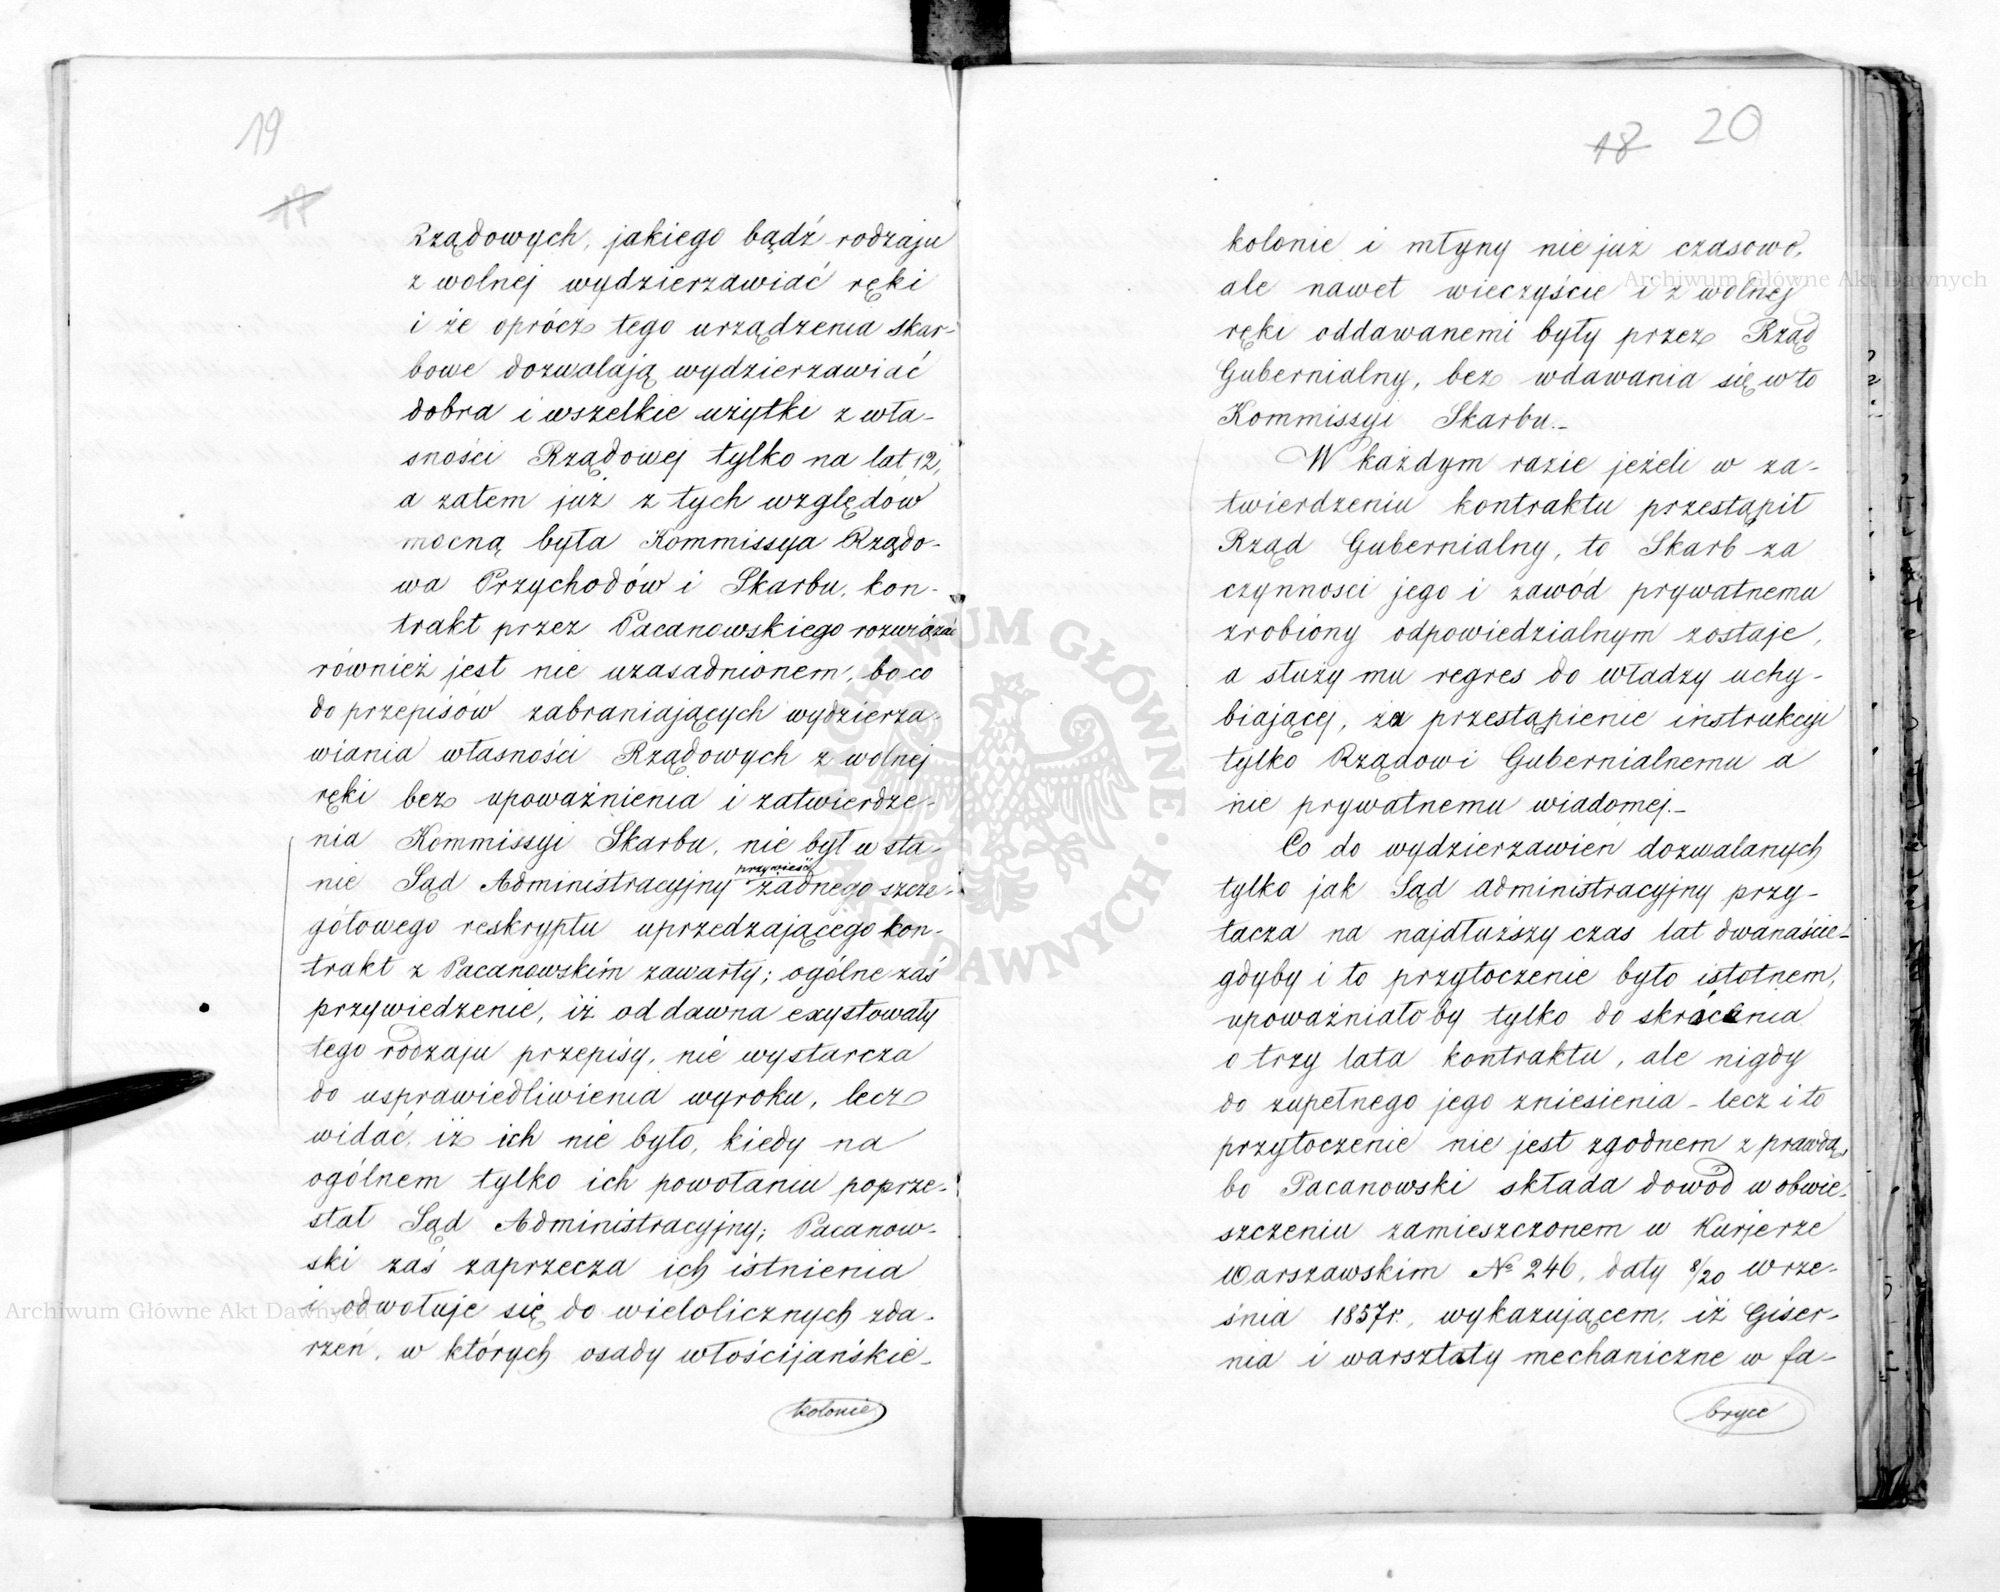 19
17
Rządowych, jakiego bądź rodzaju
z wolnej wydzierzawiać ręki
i że oprócz tego urządzenia skar-
bowe dozwalają wydzierzawiać
dobra i wszelkie użytki z wła-
sności Rządowej tylko na lat 12,
a zatem już z tych względów
mocną była Kommissya Rządo-
wa Przychodów i Skarbu, kon-
trakt przez Pacanowskiego rozwiązać
również jest nie uzasadnionem, bo co
do przepisów zabraniających wydzierza-
wiania własności Rządowych z wolnej
ręki bez upoważnienia i zatwierdze-
nia Kommissyi Skarbu, nie był w sta-
nie Sąd Administracyjny przywieść żadnego szcze-
gółowego reskryptu uprzedzającego kon-
trakt z Pacanowskim zawarty; ogólne zaś
przywiedzenie, iż od dawna exystowały
tego rodzaju przepisy, nie wystarcza
do usprawiedliwienia wyroku, lecz
widać, iż ich nie było, kiedy na
ogólnem tylko ich powołaniu poprze-
stał Sąd Administracyjny; Pacanow-
ski zaś zaprzecza ich istnienia
i odwołuje się do wielolicznych zda-
rzeń, w których osady włościjańskie-
kolonie
18 20
kolonie i młyny nie już czasowo,
ale nawet wieczyście i z wolnej
ręki oddawanemi były przez Rząd
Gubernialny, bez wdawania się w to
Kommissyi Skarbu.-
W każdym razie jeżeli w za-
twierdzeniu kontraktu przestąpił
Rząd Gubernialny, to Skarb za
czynnosci jego i zawód prywatnemu
zrobiony odpowiedzialnym zostaje,
a służy mu regres do władzy uchy-
biającej, za przestąpienie instrukcyi
tylko Rządowi Gubernialnemu a
nie prywatnemu wiadomej.-
Co do wydzierzawień dozwalanych
tylko jak Sąd administracyjny przy-
tacza na najdłuższy czas lat dwanaście-
gdyby i to przytoczenie było istotnem,
upoważniałoby tylko do skrócenia
o trzy lata kontraktu, ale nigdy
do zupełnego jego zniesienia - lecz i to
przytoczenie nie jest zgodnem z prawdą,
bo Pacanowski składa dowód w obwie-
szczeniu zamieszczonem w Kurjerze
Warszawskim № 246, daty 8/20 wrze-
śnia 1857r., wykazującem, iż Giser-
nia i warsztaty mechaniczne w fa-
bryce
Archiwum Główne Akt Dawnych
Archiwum Główne Akt Dawnych
ARCHIWUM GŁÓWNE AKT DAWNYCH